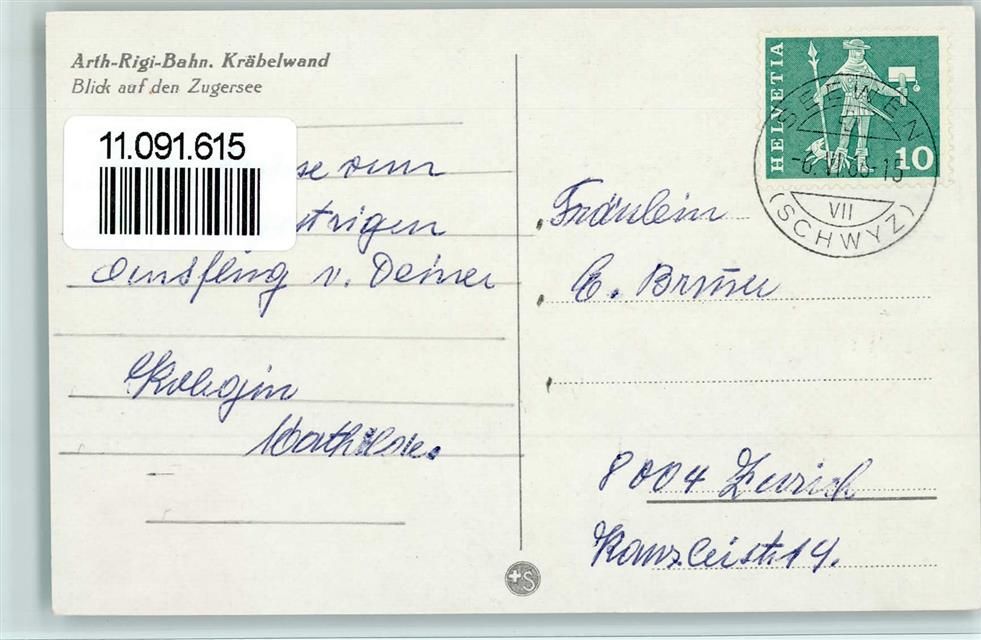 Arth-Rigi-Bahn. Kräbelwand
Blick auf den Zugersee
11.091.615
se vom
strigen
Ausflug v. Deiner
Kollegin
Mathilde.
HELVETIA
10
SEEWEN
-6. VI
15
VII
(SCHWYZ)
Fräulein
E. Bruner
8004 Zürich
Kanzleistr. 19.
S